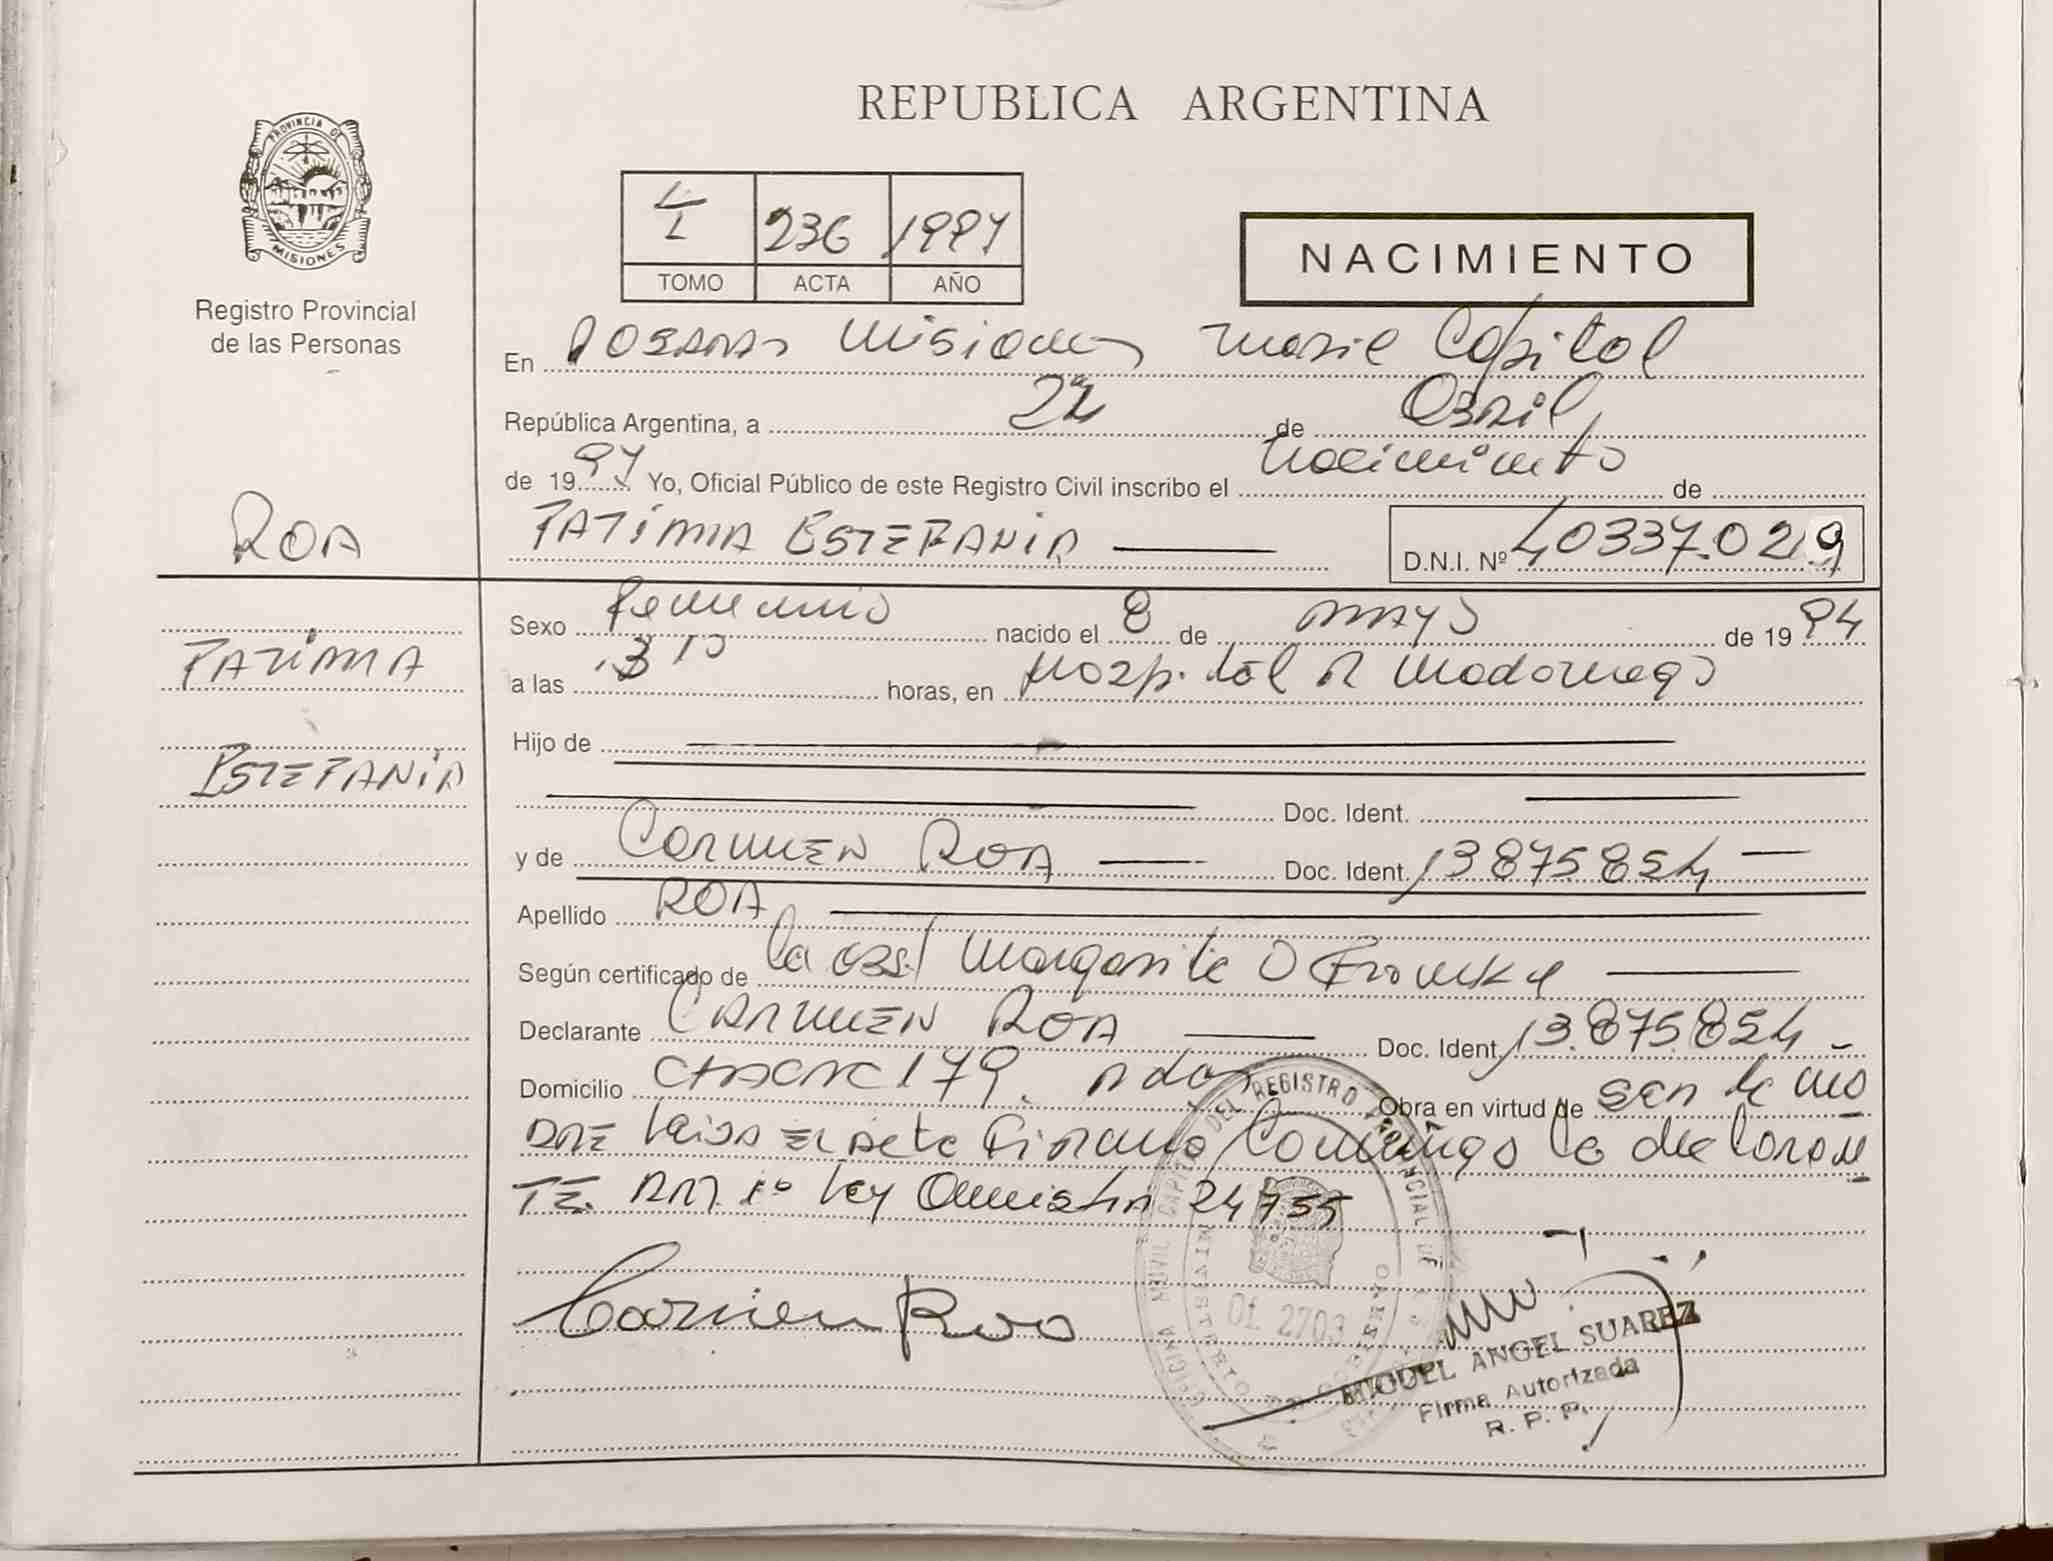 REPUBLICA ARGENTINA
PROVINCIA DE
MISIONES
Registro Provincial
de las Personas
236 1997
TOMO ACTA AÑO
NACIMIENTO
En Posadas Misiones Capital
República Argentina, a 22 de Abril
de 1997 Yo, Oficial Público de este Registro Civil inscribo el Nacimiento de
ROA
FATIMA ESTEFANIA D.N.I. Nº 40337.029
Sexo Femenino nacido el 8 de mayo de 1994
FATIMA
a las horas, en Hospital R Madariaga
Hijo de
ESTEFANIA
Doc. Ident.
y de CARMEN ROA Doc. Ident. 13875854
Apellido ROA
Según certificado de la obst Margarita
Declarante CARMEN ROA Doc. Ident. 13.875.854
Domicilio 179. Obra en virtud de ser la ma
DRE El acta Firmando Conmigo la declaran
TE. Ley Amnistia 24755
Carmen Roa
DEL REGISTRO PROVINCIAL DE
OFICINA MOVIL CAPITAL
MINISTERIO DE GOBIERNO
Of. 2703
MIGUEL ANGEL SUAREZ
Firma Autorizada
R. P. P.